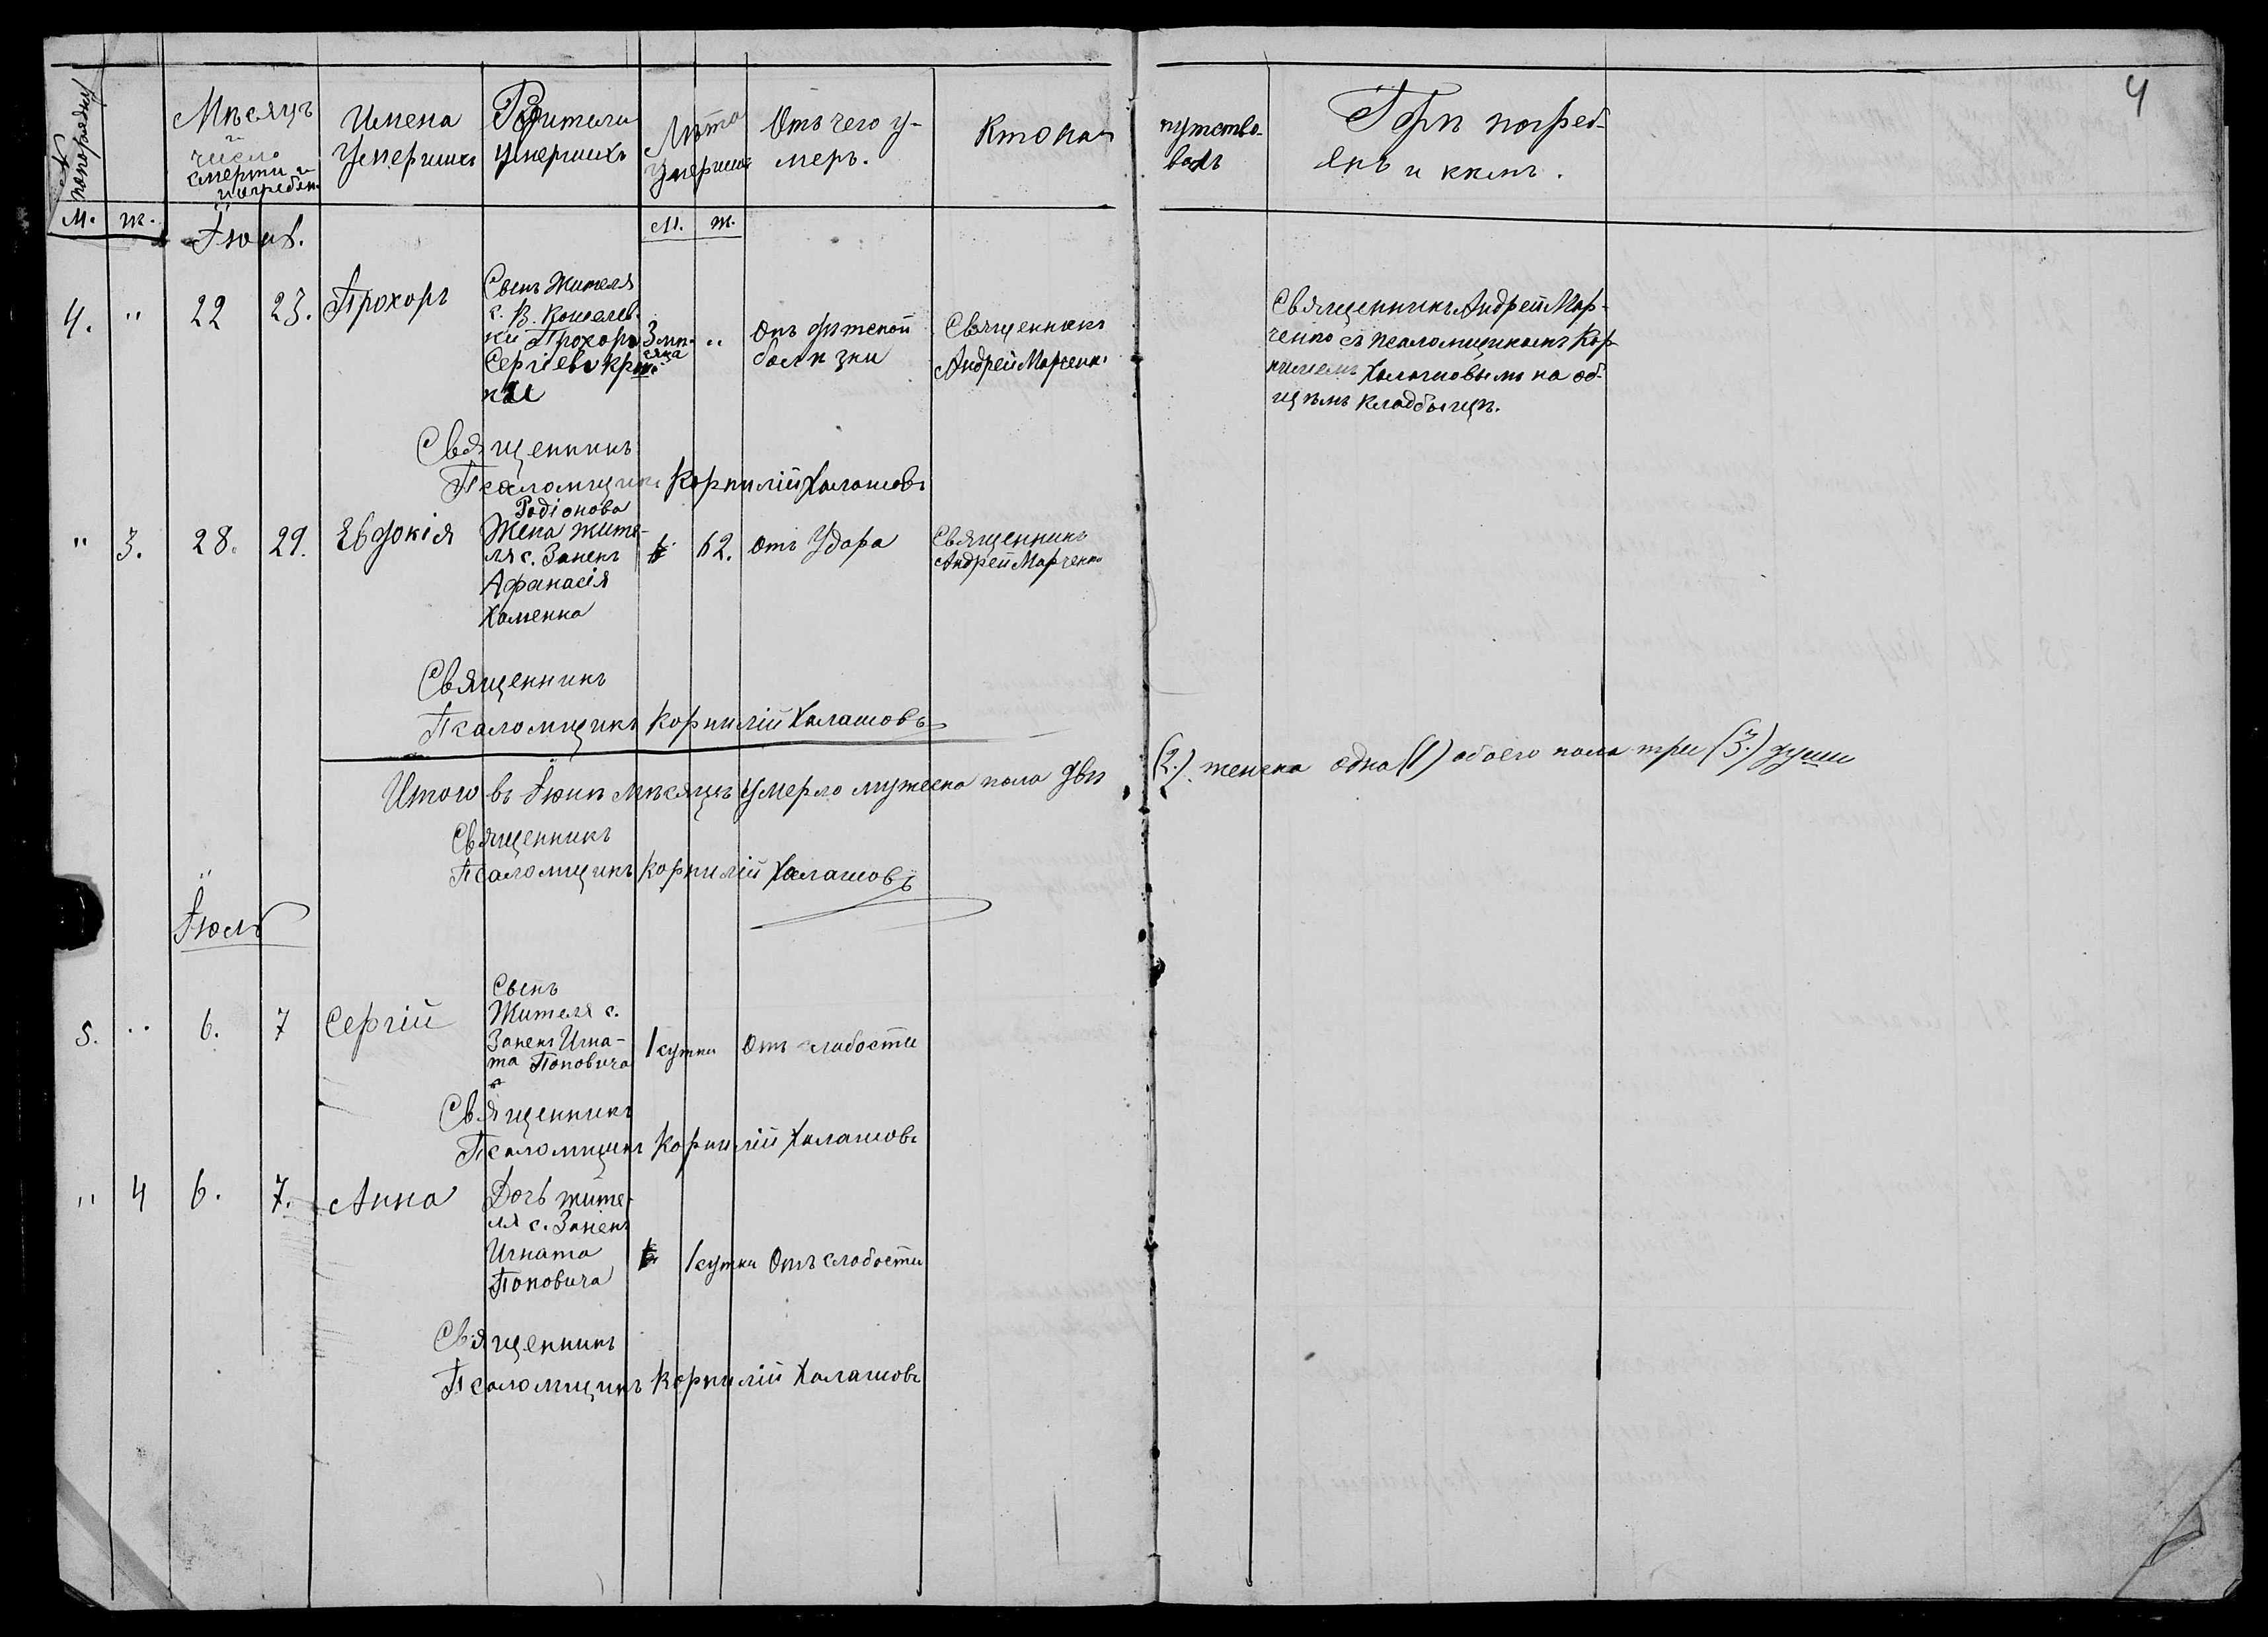 4
№ попорядку
М. ж.
Мѣсяцъ
и
число
смерти и
погребен.
Имена
умершихъ
Родители
умершихъ
Лѣта
умершихъ
М. ж.
Отъ чего у-
меръ.
Кто на-
путство-
валъ
Гдѣ погреб-
енъ и кѣмъ.
Іюнь.
4. " 22 23. Прохоръ
Сынъ жителя
с. В. Кошелев-
ки Прохора
Сергіева
3 мѣ-
сяца
"
Отъ дѣтской
болѣзни
Священникъ
Андрей Марченко
Священникъ Андрей Мар-
ченко съ псаломщикомъ Кор-
ниліемъ Халашовымъ на об-
щемъ кладбищѣ.
Священникъ
Псаломщикъ Корнилій Халашовъ
" 3. 28. 29. Евдокія
Родіонова
Жена жите-
ля с. Занекъ
Афанасія
Хоменка
62. Отъ удара
Священникъ
Андрей Марченко
Священникъ
Псаломщикъ Корнилій Халашовъ
Итого въ Іюнѣ мѣсяцѣ умерло мужеска пола двѣ (2.) женска одна (1) обоего пола три (3.) души
Священникъ
Псаломщикъ Корнилій Халашовъ
Іюль
5. " 6. 7 Сергій
Сынъ
жителя с.
Занекъ Игна-
та Поповича
1 сутки Отъ слабости
Священникъ
Псаломщикъ Корнилій Халашовъ
" 4 6. 7. Анна
Дочь жите-
ля с. Занекъ
Игната
Поповича
1 сутки Отъ слабости
Священникъ
Псаломщикъ Корнилій Халашовъ